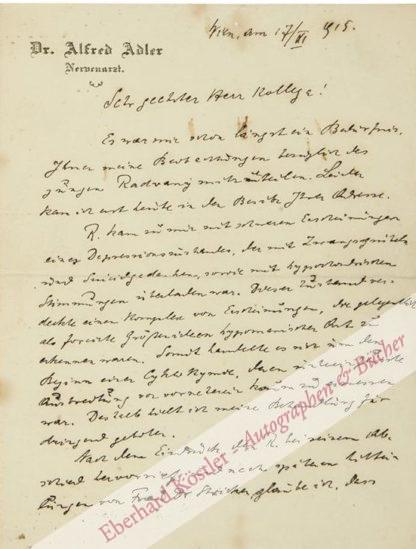 Wien, am 17/XI 1915.
Dr. Alfred Adler
Nervenarzt.
Sehr geehrter Herr Kollege!
Es war mir schon längst ein Bedürfnis,
Ihnen meine Beobachtungen bezüglich des
jungen Radvany mitzuteilen. Leider
kam ich erst heute in den Besitz Ihrer Adresse.
R. kam zu mir mit schweren Erscheinungen
eines Depressionszustandes, der mit Zwangsgrübeln
und Suicidgedanken, sowie mit hypochondrischen
Stimmungen überladen war. Dieser Zustand ver-
deckte einen Komplex von Erscheinungen, die gelegentlich
als forcirte Größenideen hypomanischer Art zu
erkennen waren. Somit handelte es sich um den
Beginn einer Cyklothymie, deren
Ausbreitung von vorneherein kaum zu ermessen
war. Deshalb hielt ich meine Behandlung für
dringend geboten.
Nach dem Eindruck, den R. bei seinem Ab-
schied hervorrief, und nach späteren Mittei-
lungen von Frau Dr. glaube ich, dass
Eberhard Köstler - Autographen & Bücher